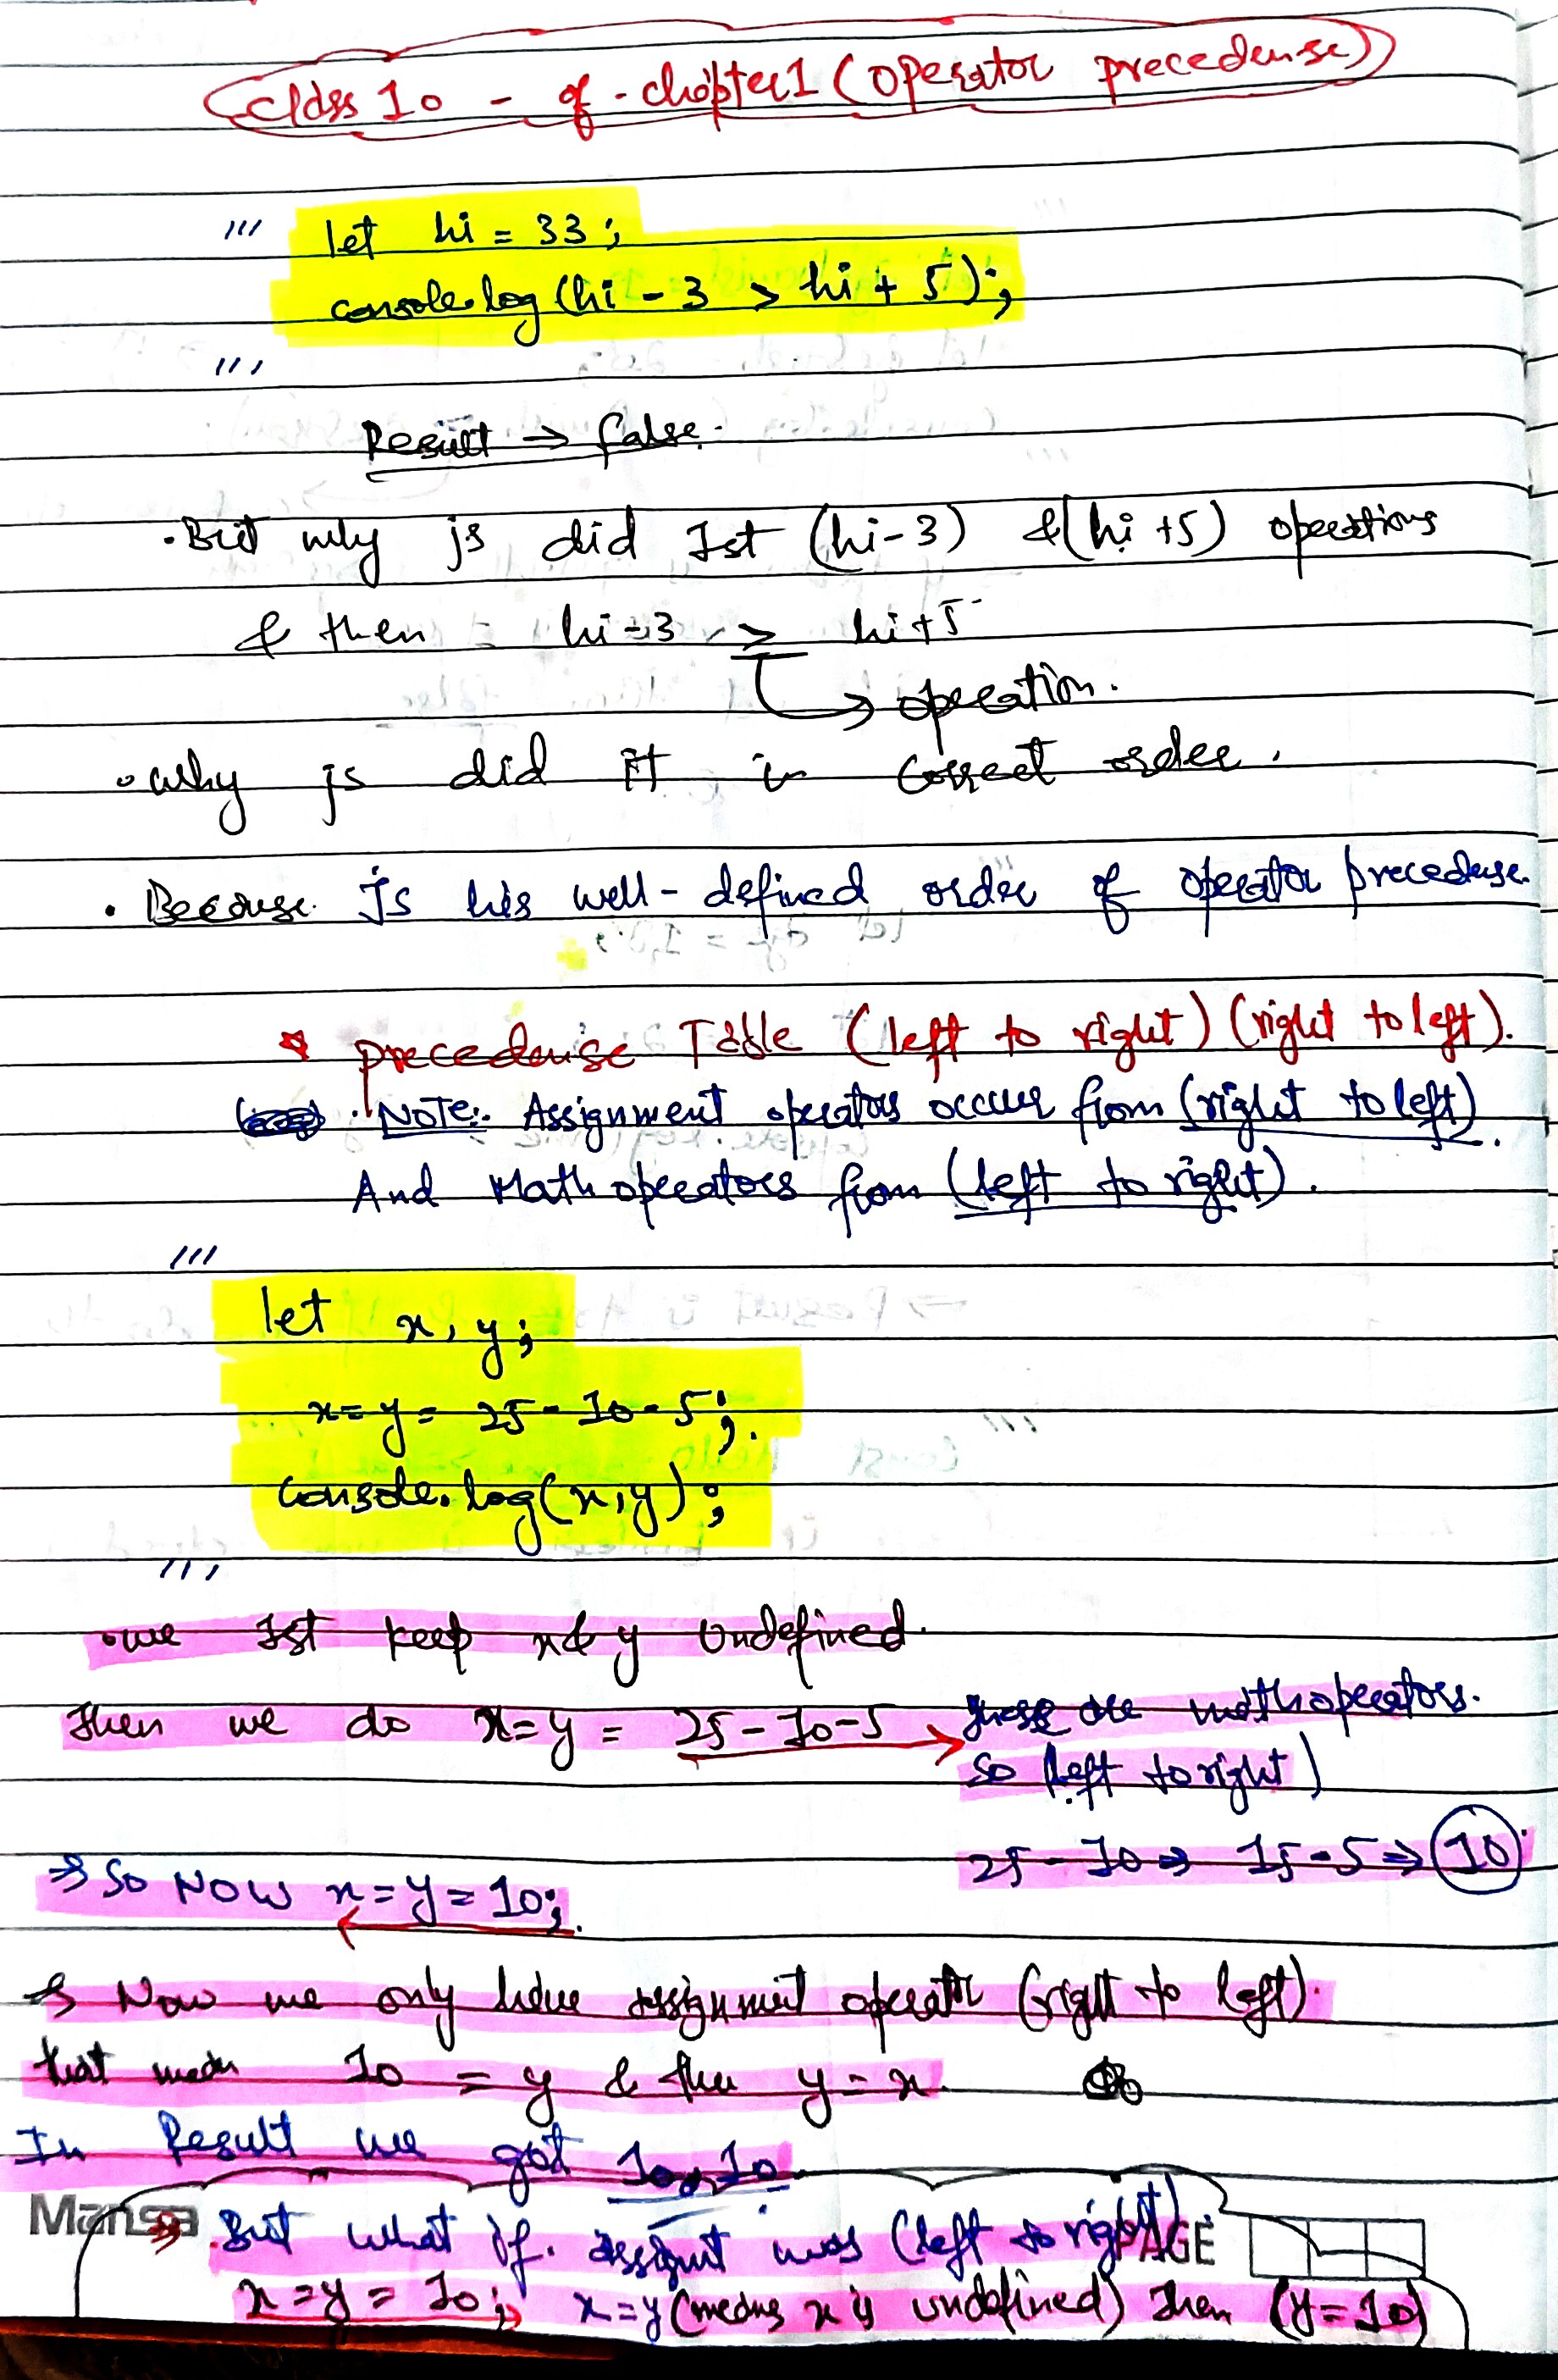 Class 10 - of - chapter 1 (operator precedense)
'''
let hi = 33;
console.log(hi - 3 > hi + 5);
'''
Result → false.
• But why js did 1st (hi-3) & (hi +5) operations
& then hi-3 > hi+5
→ operation.
• why js did it in correct order.
• Because js has well-defined order of operator precedense.
* precedense Table (left to right) (right to left).
• NOTE:- Assignment operators occur from (right to left).
And Math operators from (left to right).
'''
let x, y;
x = y = 25 - 10 - 5;
console.log(x, y);
'''
• we 1st keep x & y Undefined.
Then we do x = y = 25 - 10 - 5 → these are math operators.
so (left to right)
25 - 10 ⇒ 15 - 5 ⇒ 10
⇒ So NOW x = y = 10;
⇒ Now we only have assignment operator (right to left).
that mean 10 = y & then y = x.
In Result we got 10, 10.
Mansa PAGE
⇒ But what if assignt was (left to right)
x = y = 10; x = y (means x is undefined) then (y = 10)